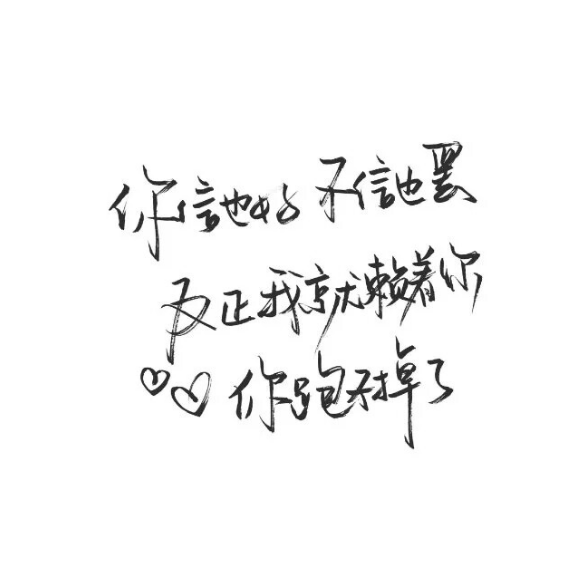 你信也好 不信也罢
反正我就赖着你
你跑不掉了